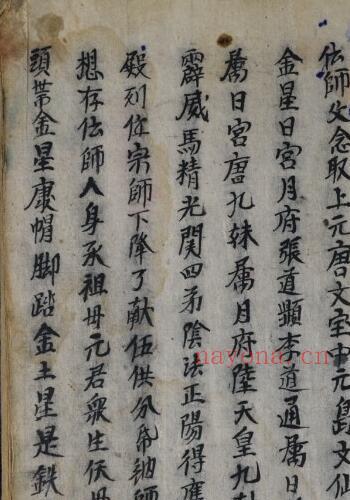 師父念取上元唐文室中元島文仙
金星日宮月府張道顕李道通属日
属日宮唐九妹属月府陸天皇九
霹威馬精光関四弟陰法正陽得應
殿列位宗師下降了献伍供分帋納師
想存師人身承祖毋元君衆生
頭帶金星康帽脚踏金土星是鉄
nayona.cn